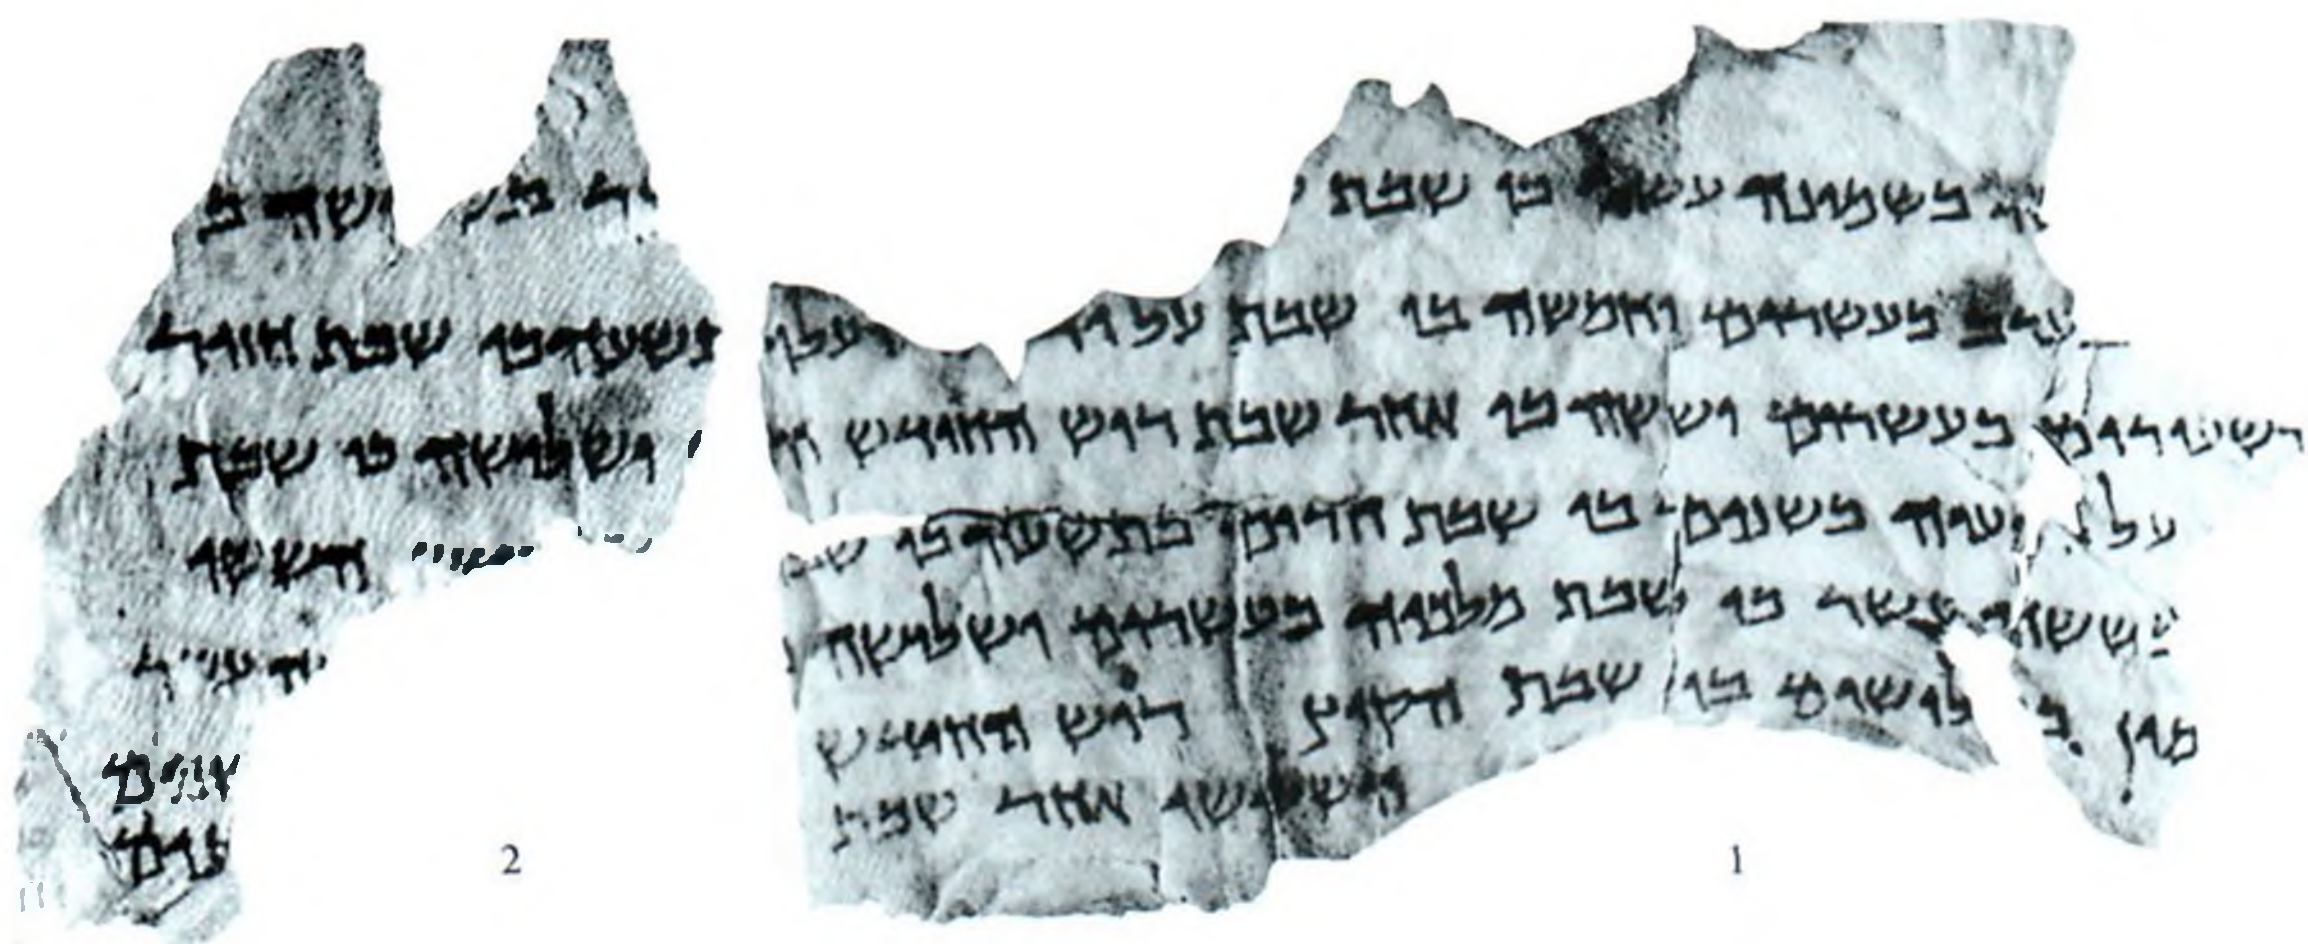 בשמונה עשר בו שבת
ערב בעשרים וחמשה בו שבת על יד ועלו
שעורים בעשרים וששה בו אחר שבת רוש החודש ה
על ידעיה בשנים בו שבת חרים בתשעה בו ש
בששה עשר בו שבת מלכיה בעשרים ושלושה
מין לושים בו שבת הקוץ רוש החודש
השלישי אחר שבת
שה ב
תשעה בו שבת חזיר
ושלושה בו שבת
הששי